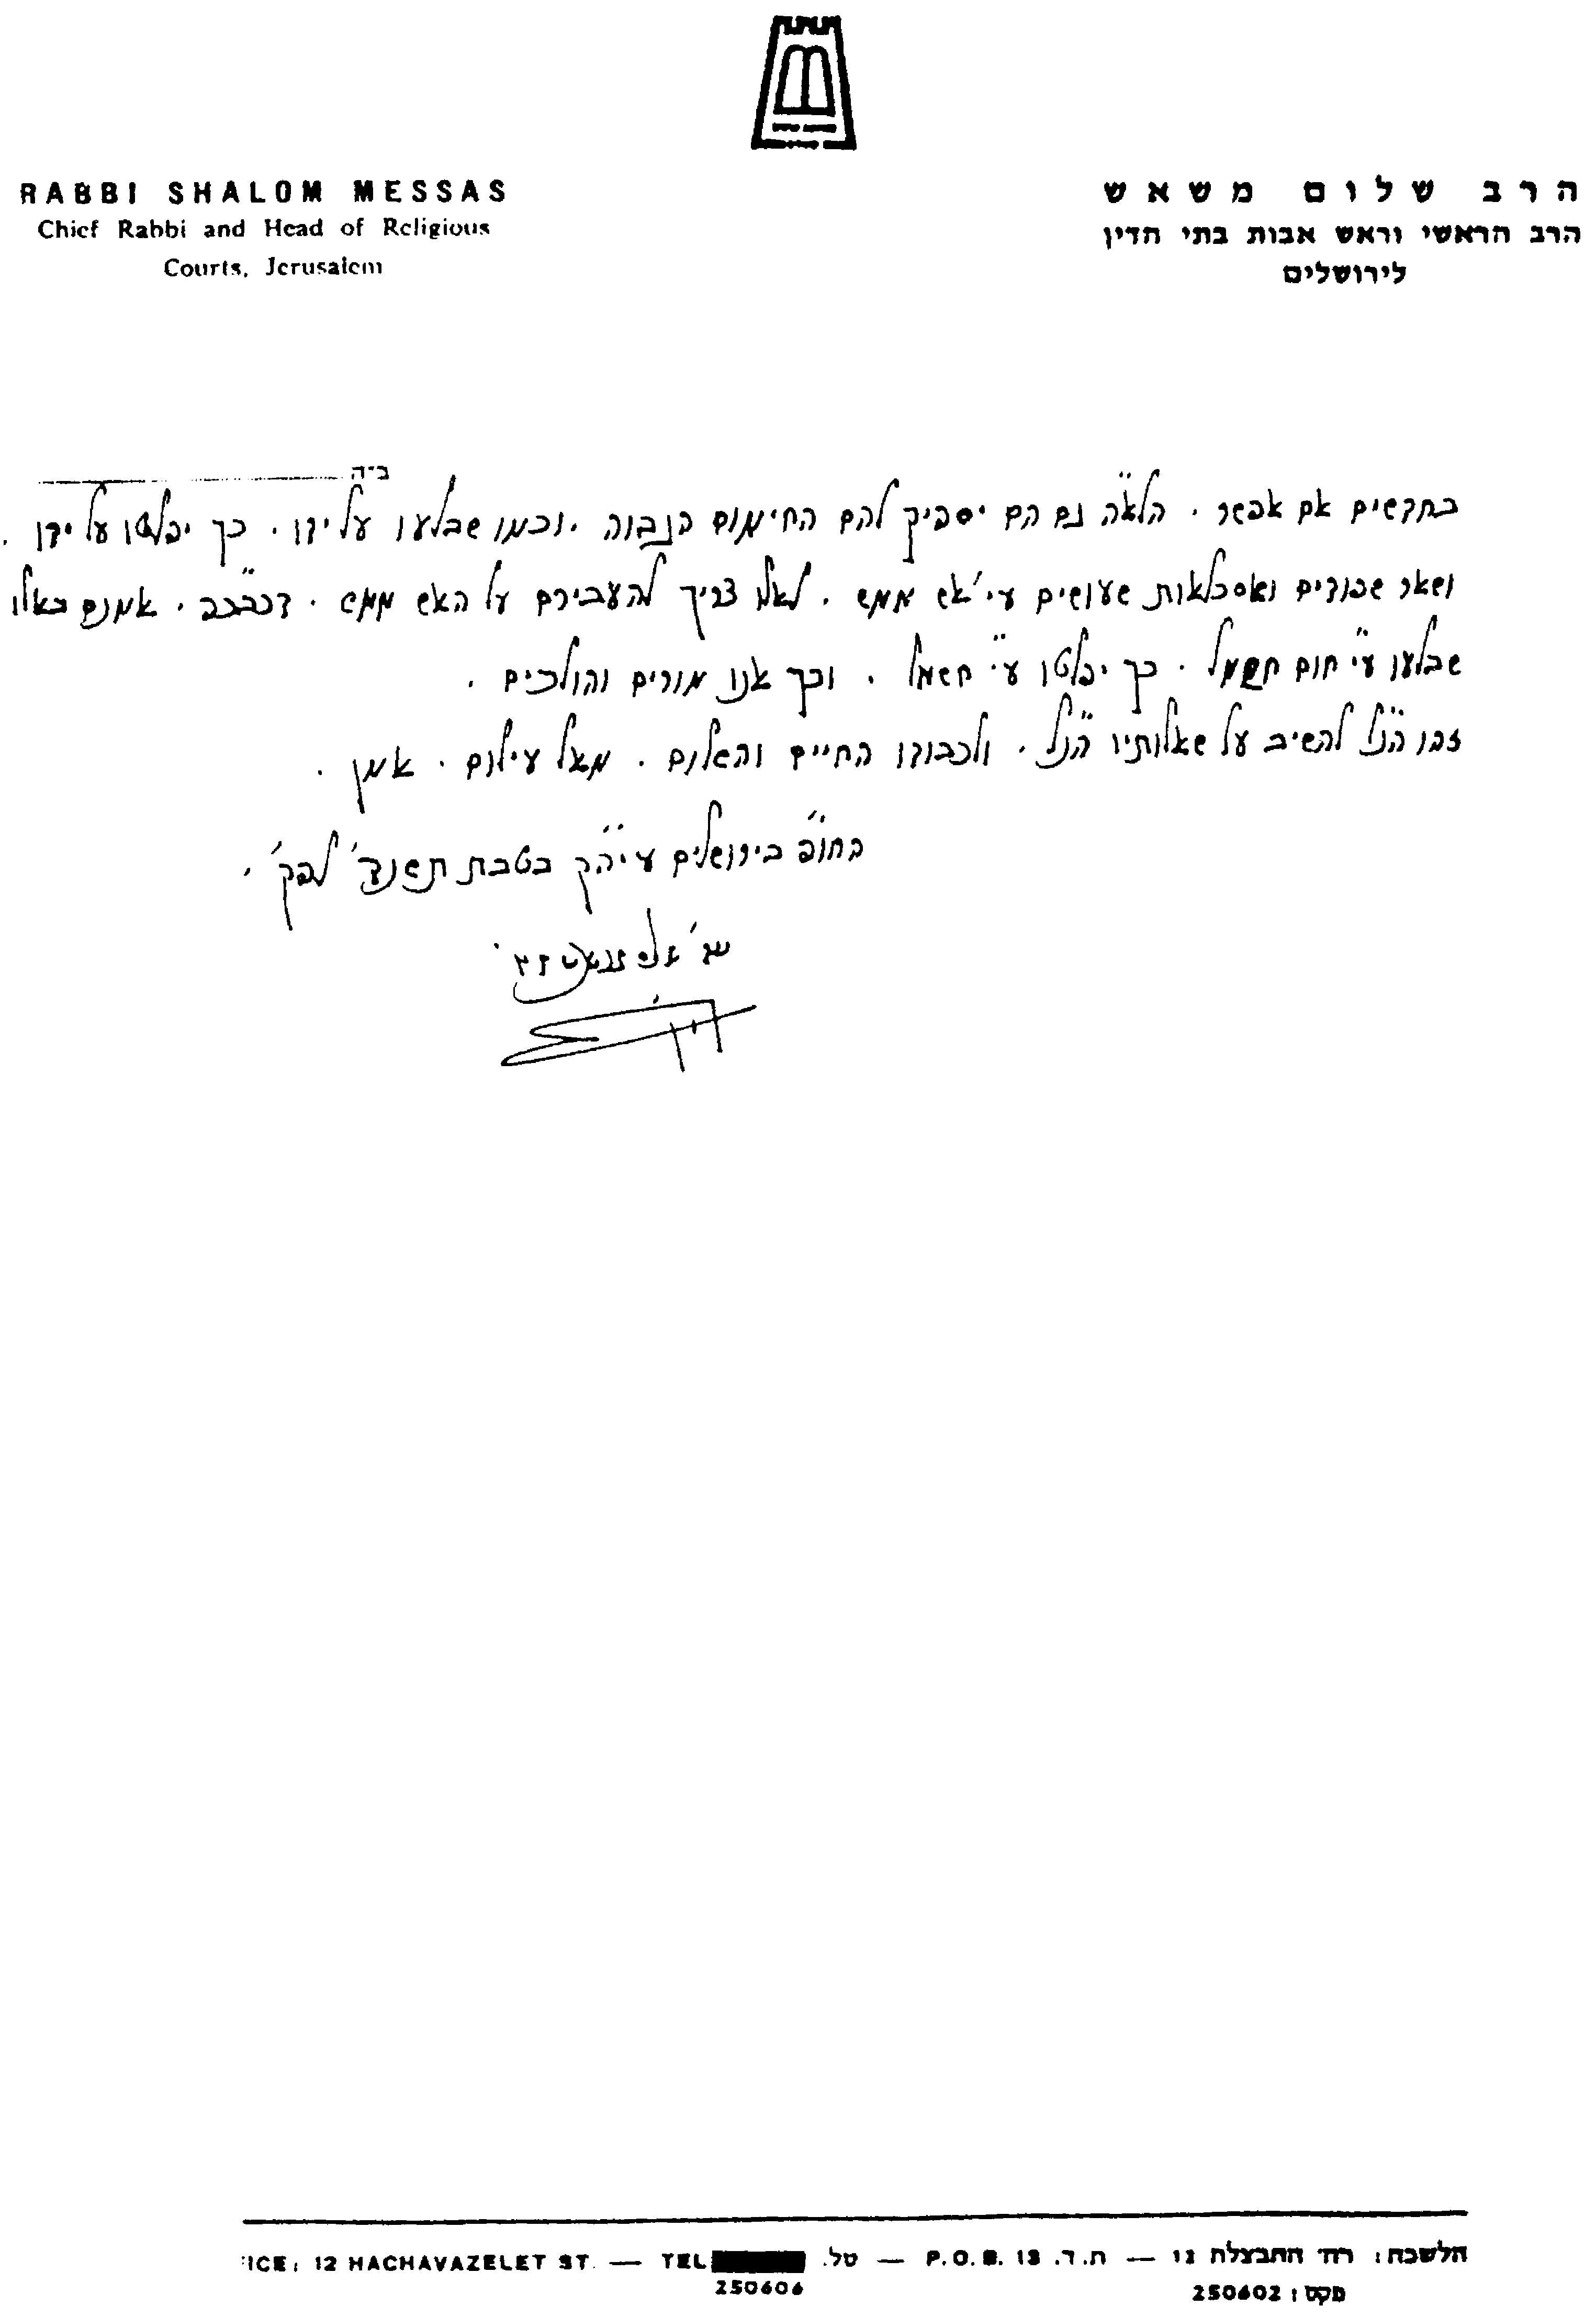 RABBI SHALOM MESSAS
Chief Rabbi and Head of Religious
Courts, Jerusalem
הרב שלום משאש
הרב הראשי וראש אבות בתי הדין
לירושלים
ב"ה
בחדשים אם אפשר . הלא"ה גם הם יספיק להם החימום הגבוה . וכמו שבלעו על ידו . כך יפלטו על ידו .
ושאר שפודים ואסכלאות שעושים ע"י אש ממש . לאלו צריך להעבירם על האש ממש . דכבכ"פ . אמנם באלו
שבלעו ע"י חום חשמל . כך יפלטו ע"י חשמל . וכך אנו מורים והולכים .
זהו הנ"ל להשיב על שאלותיו הנ"ל . ולכבודו החיים והשלום . מאל עילום . אמן .
בחו"פ בירושלים עיה"ק בטבת תשנד' לפק' .
ICE: 12 HACHAVAZELET ST. — TEL
טל. — P.O.B. 13 ת.ד. — הלשכה: רח' החבצלת 12
250606
פקס : 250602